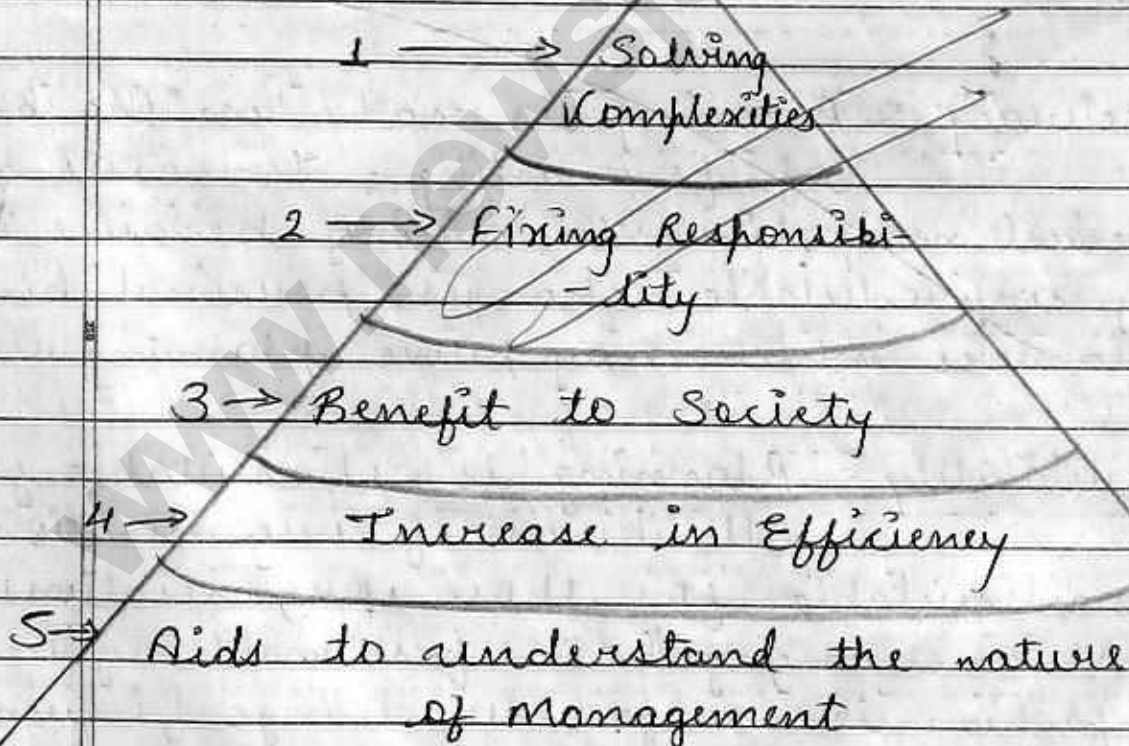 1 → Solving
Complexities
2 → Fixing Responsibi-
- lity
3 → Benefit to Society
4 → Increase in Efficiency
5 → Aids to understand the nature
of Management
www.news